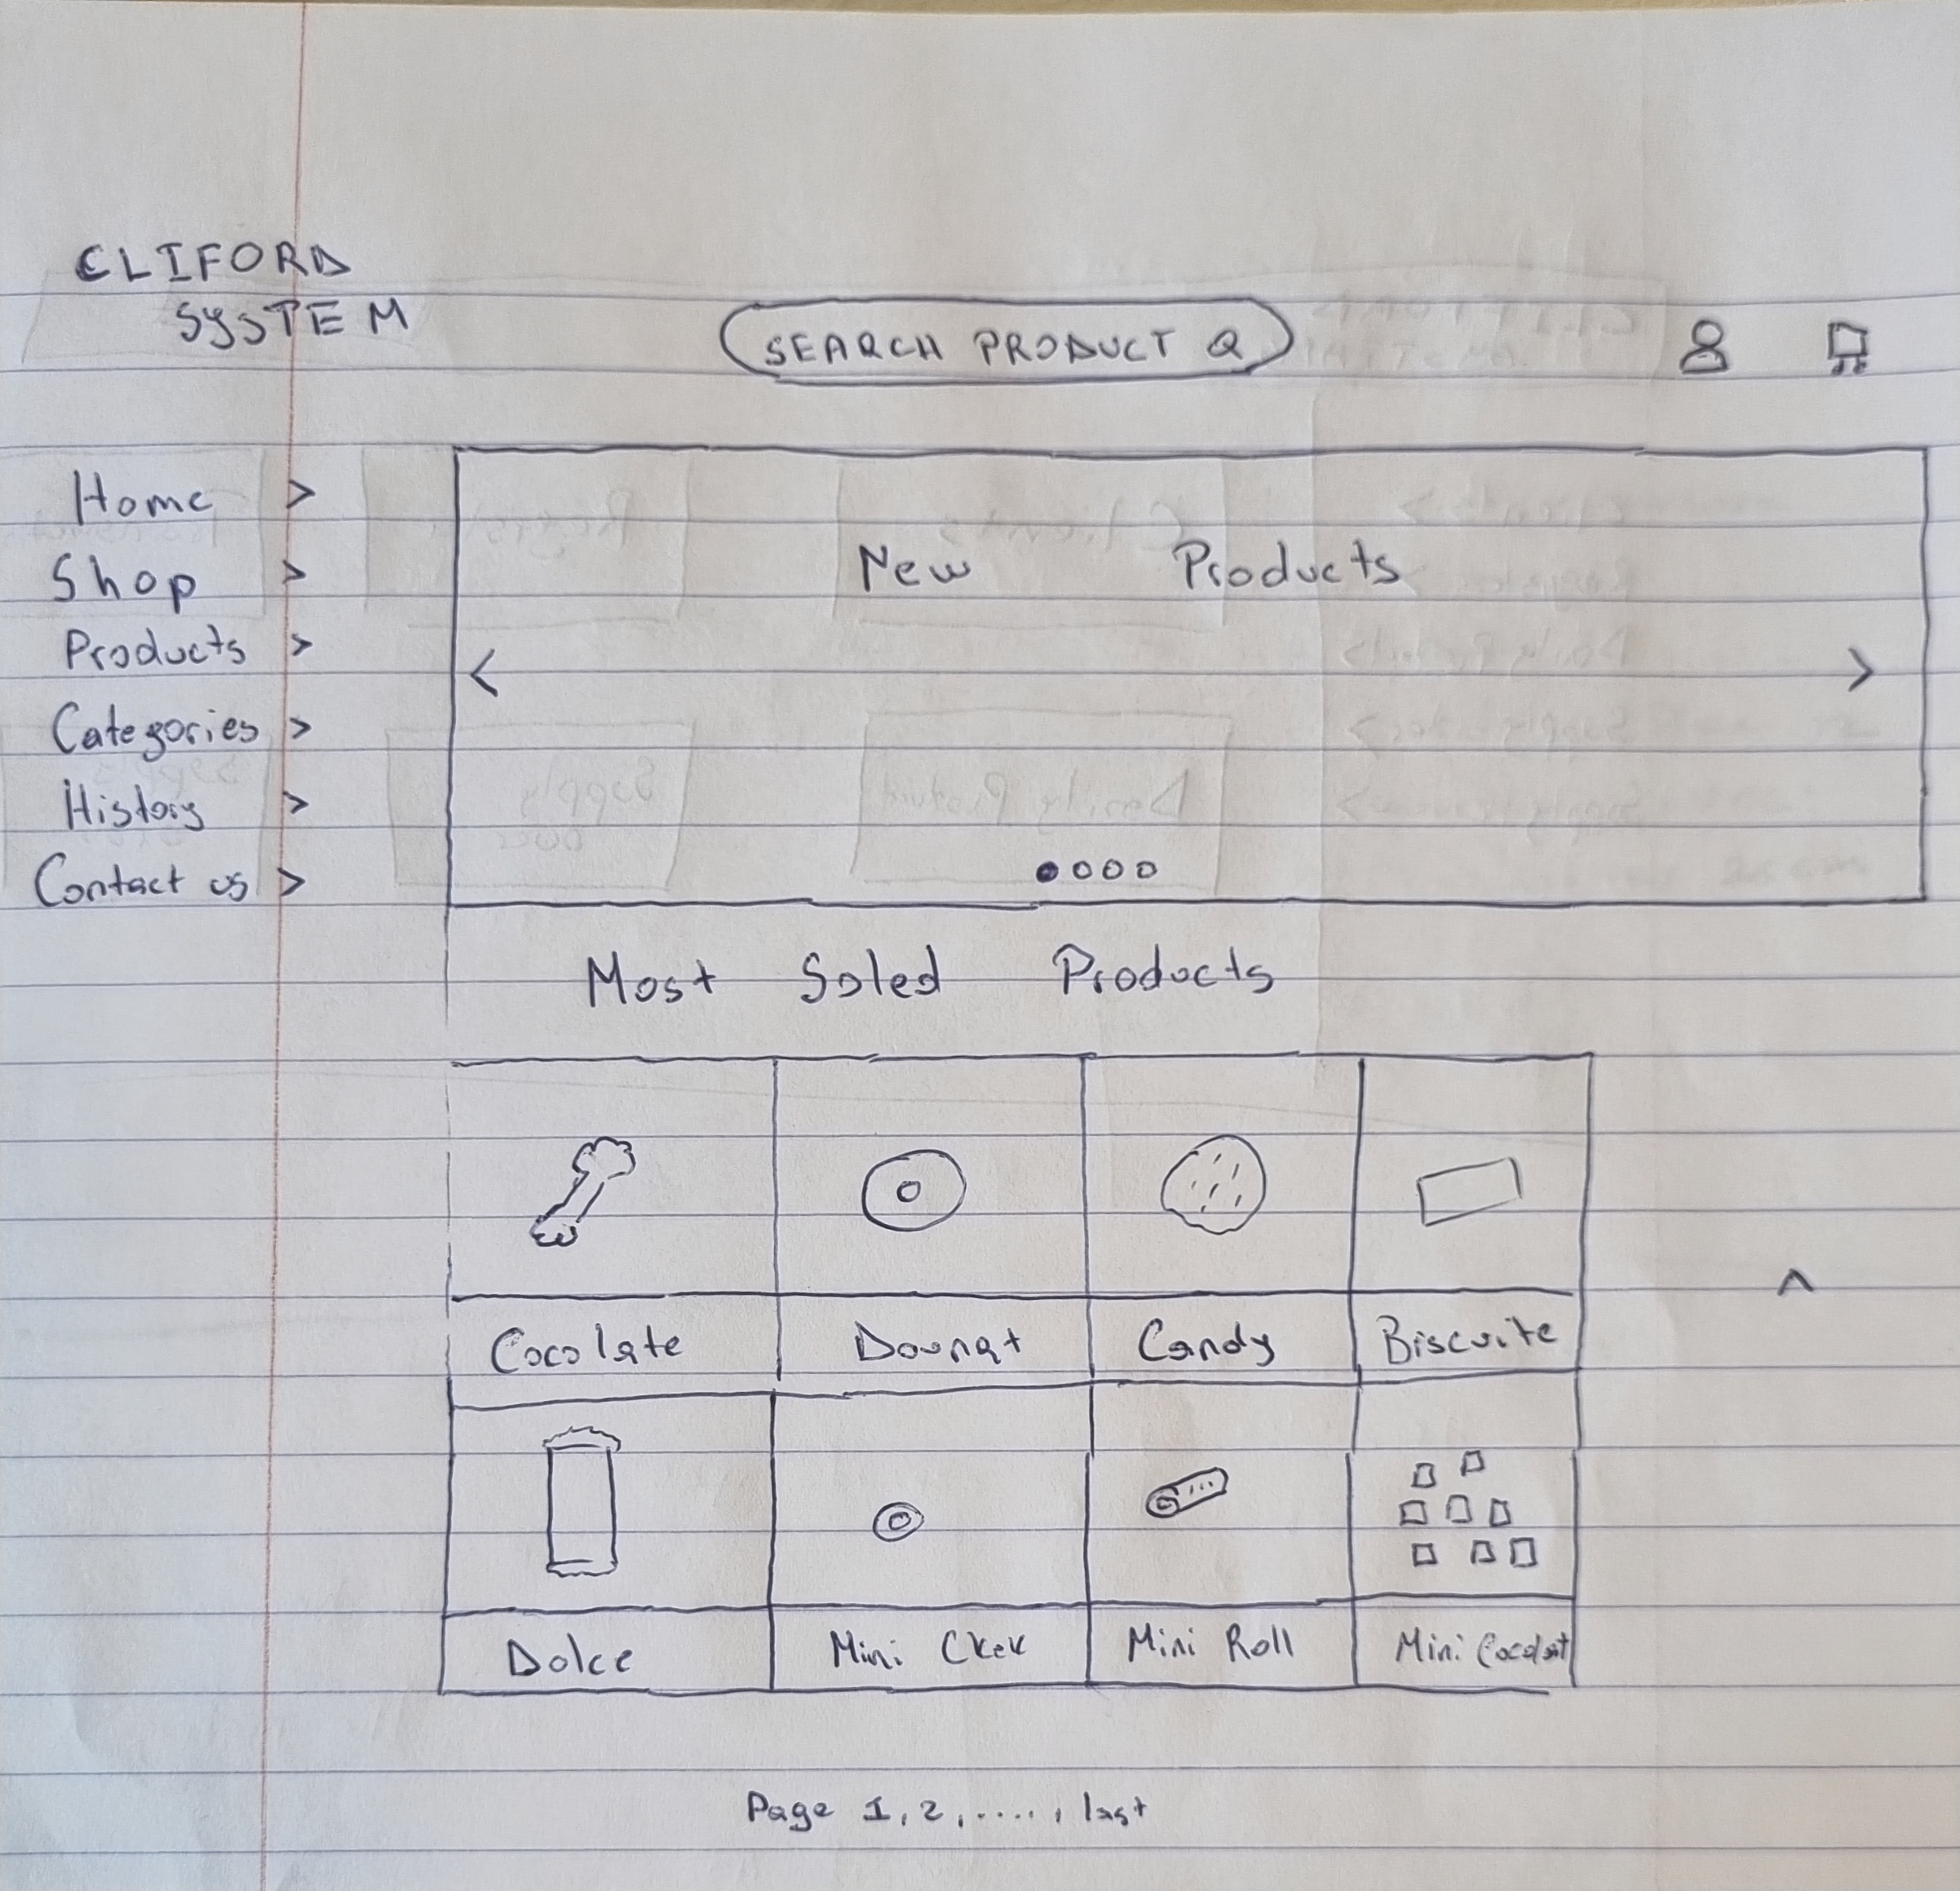 CLIFORD
SYSTEM
SEARCH PRODUCT
Home >
Shop >
Products >
Categories >
History >
Contact us >
New Products
<
>
Most Soled Products
Cocolate
Dounat
Candy
Biscuite
^
Dolce
Mini Ckek
Mini Roll
Mini Cocolat
Page 1, 2, ....., last